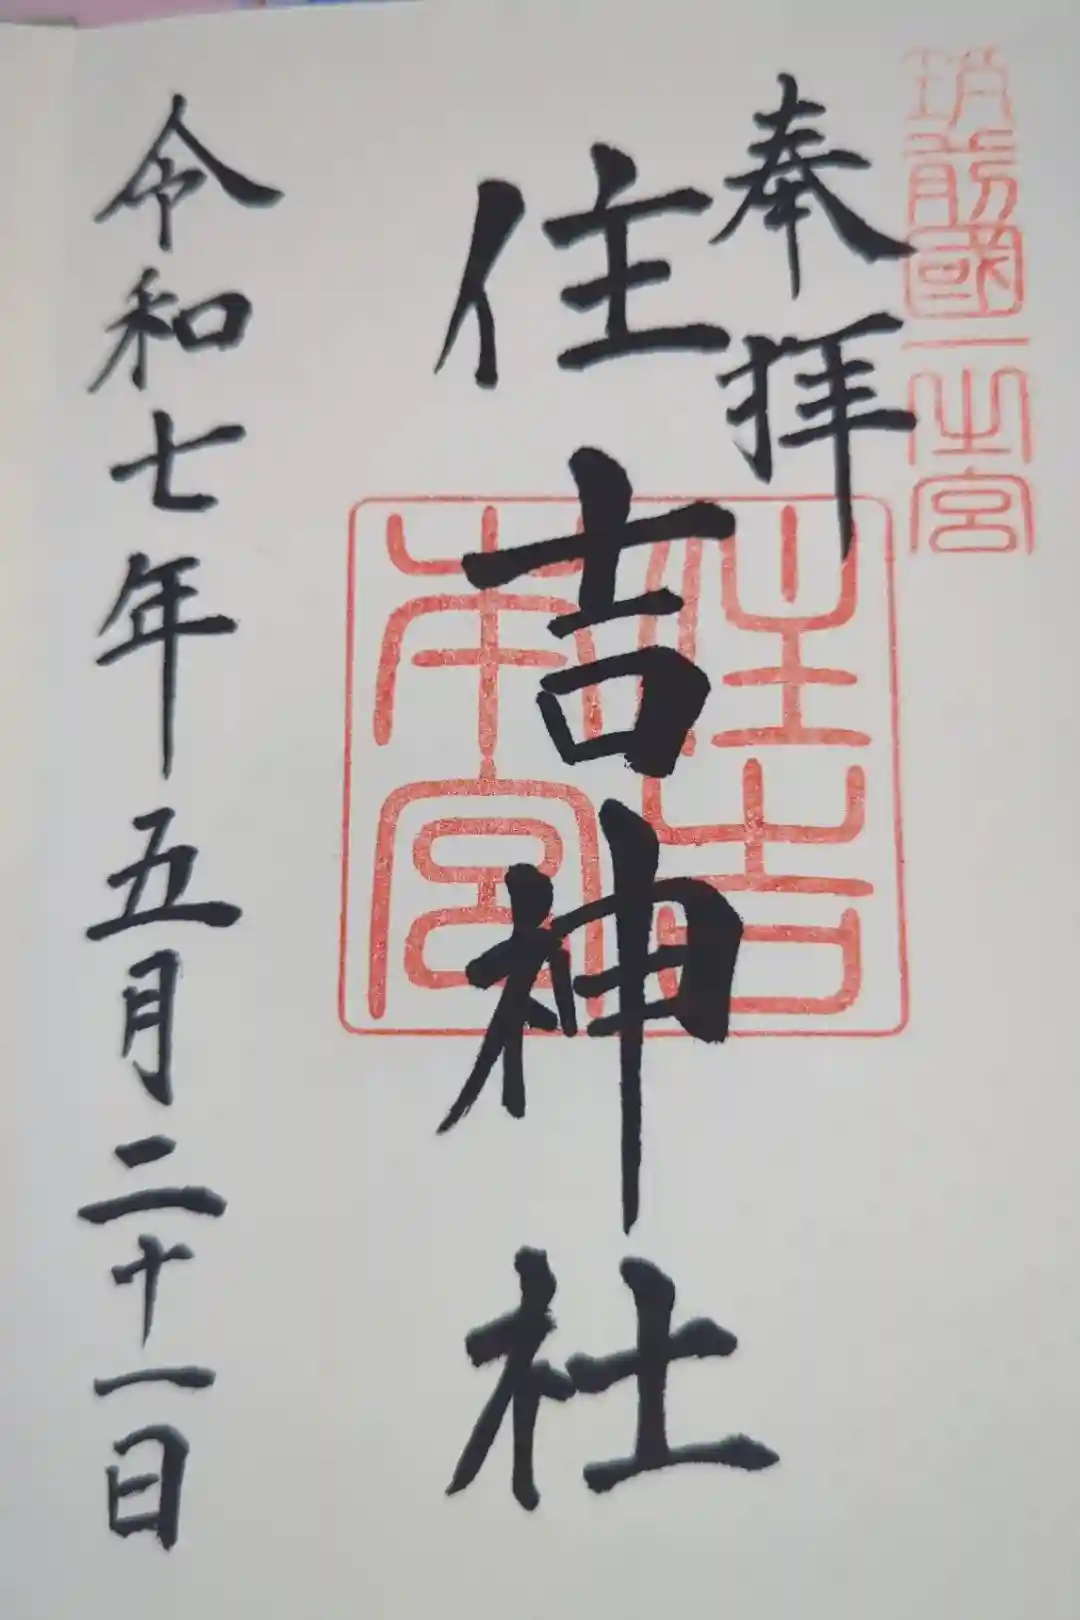 筑前國一之宮
奉拝
住吉神社
住吉
本宮
令和七年五月二十一日